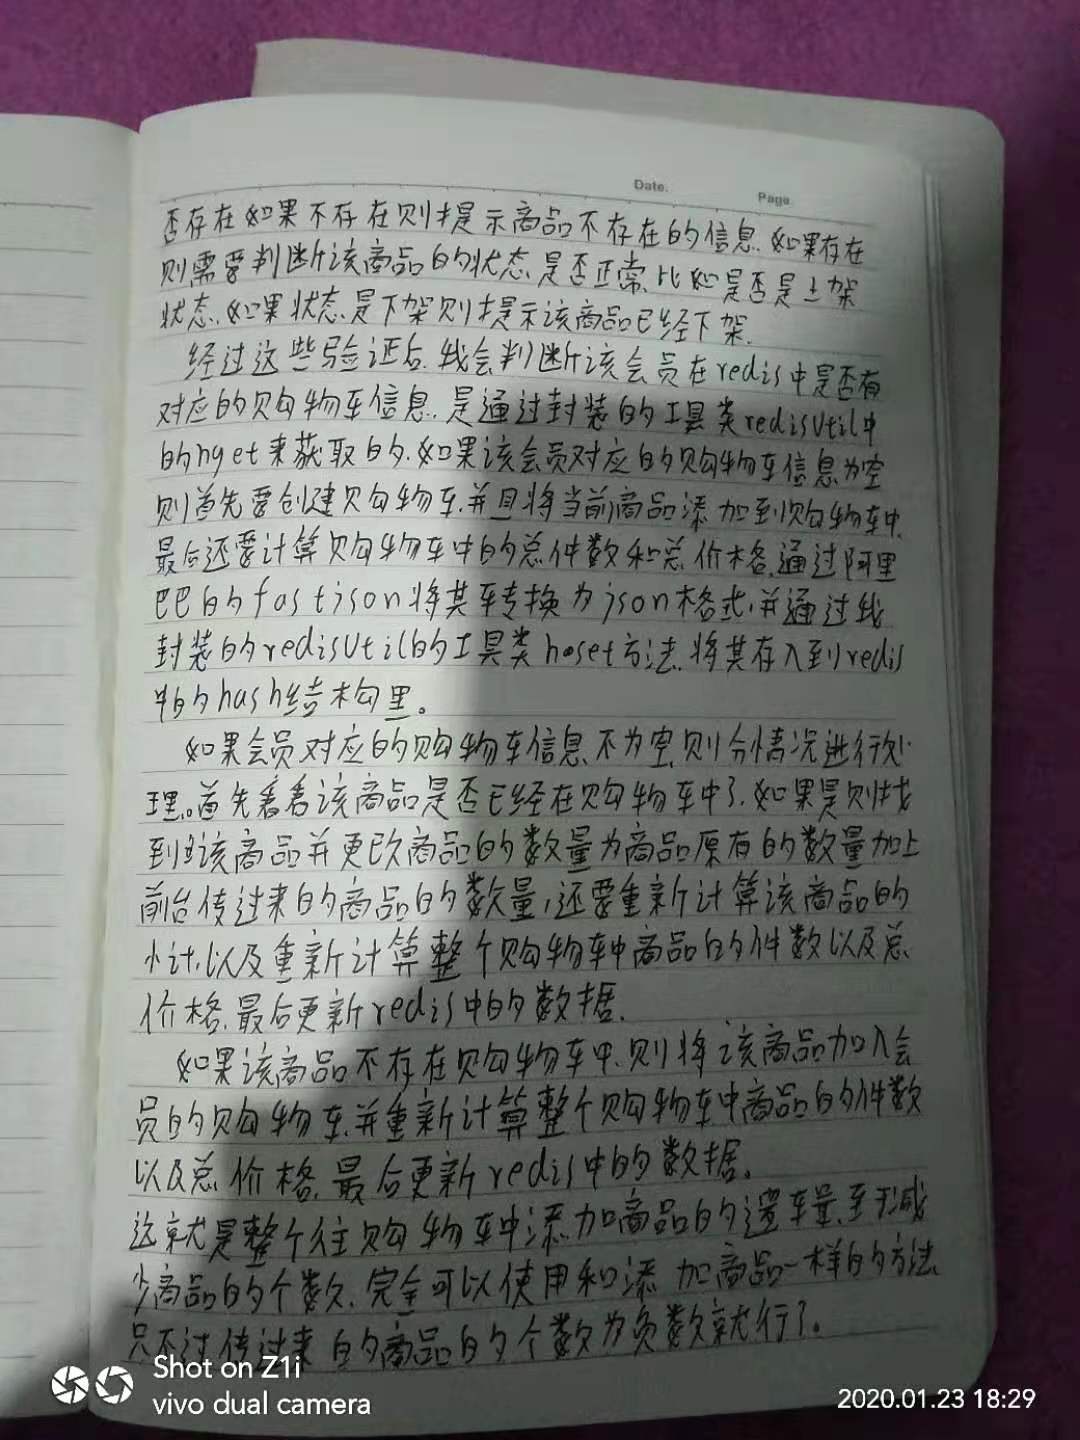 Date:
Page
否存在如果不存在则提示商品不存在的信息.如果存在
则需要判断该商品的状态是否正常、比如是否是上架
状态.如果状态是下架则提示该商品已经下架.
经过这些验证后.我会判断该会员在redis中是否有
对应的购物车信息.是通过封装的工具类redisUtil中
的hget来获取的.如果该会员对应的购物车信息为空
则首先要创建购物车.并且将当前商品添加到购物车中.
最后还要计算购物车中的总件数和总价格.通过阿里
巴巴的fastjson将其转换为json格式,并通过我
封装的redisUtil的工具类hset方法.将其存入到redis
中的hash结构里。
如果会员对应的购物车信息不为空,则分情况进行处
理。首先看看该商品是否已经在购物车中了.如果是则找
到该商品并更改商品的数量为商品原有的数量加上
前台传过来的商品的数量,还要重新计算该商品的
小计,以及重新计算整个购物车中商品的件数以及总
价格.最后更新redis中的数据.
如果该商品不存在购物车中.则将该商品加入会
员的购物车.并重新计算整个购物车中商品的件数
以及总价格.最后更新redis中的数据。
这就是整个往购物车中添加商品的逻辑,至于减
少商品的个数.完全可以使用和添加商品一样的方法
只不过传过来的商品的个数为负数就行了。
Shot on Z1i
vivo dual camera
2020.01.23 18:29